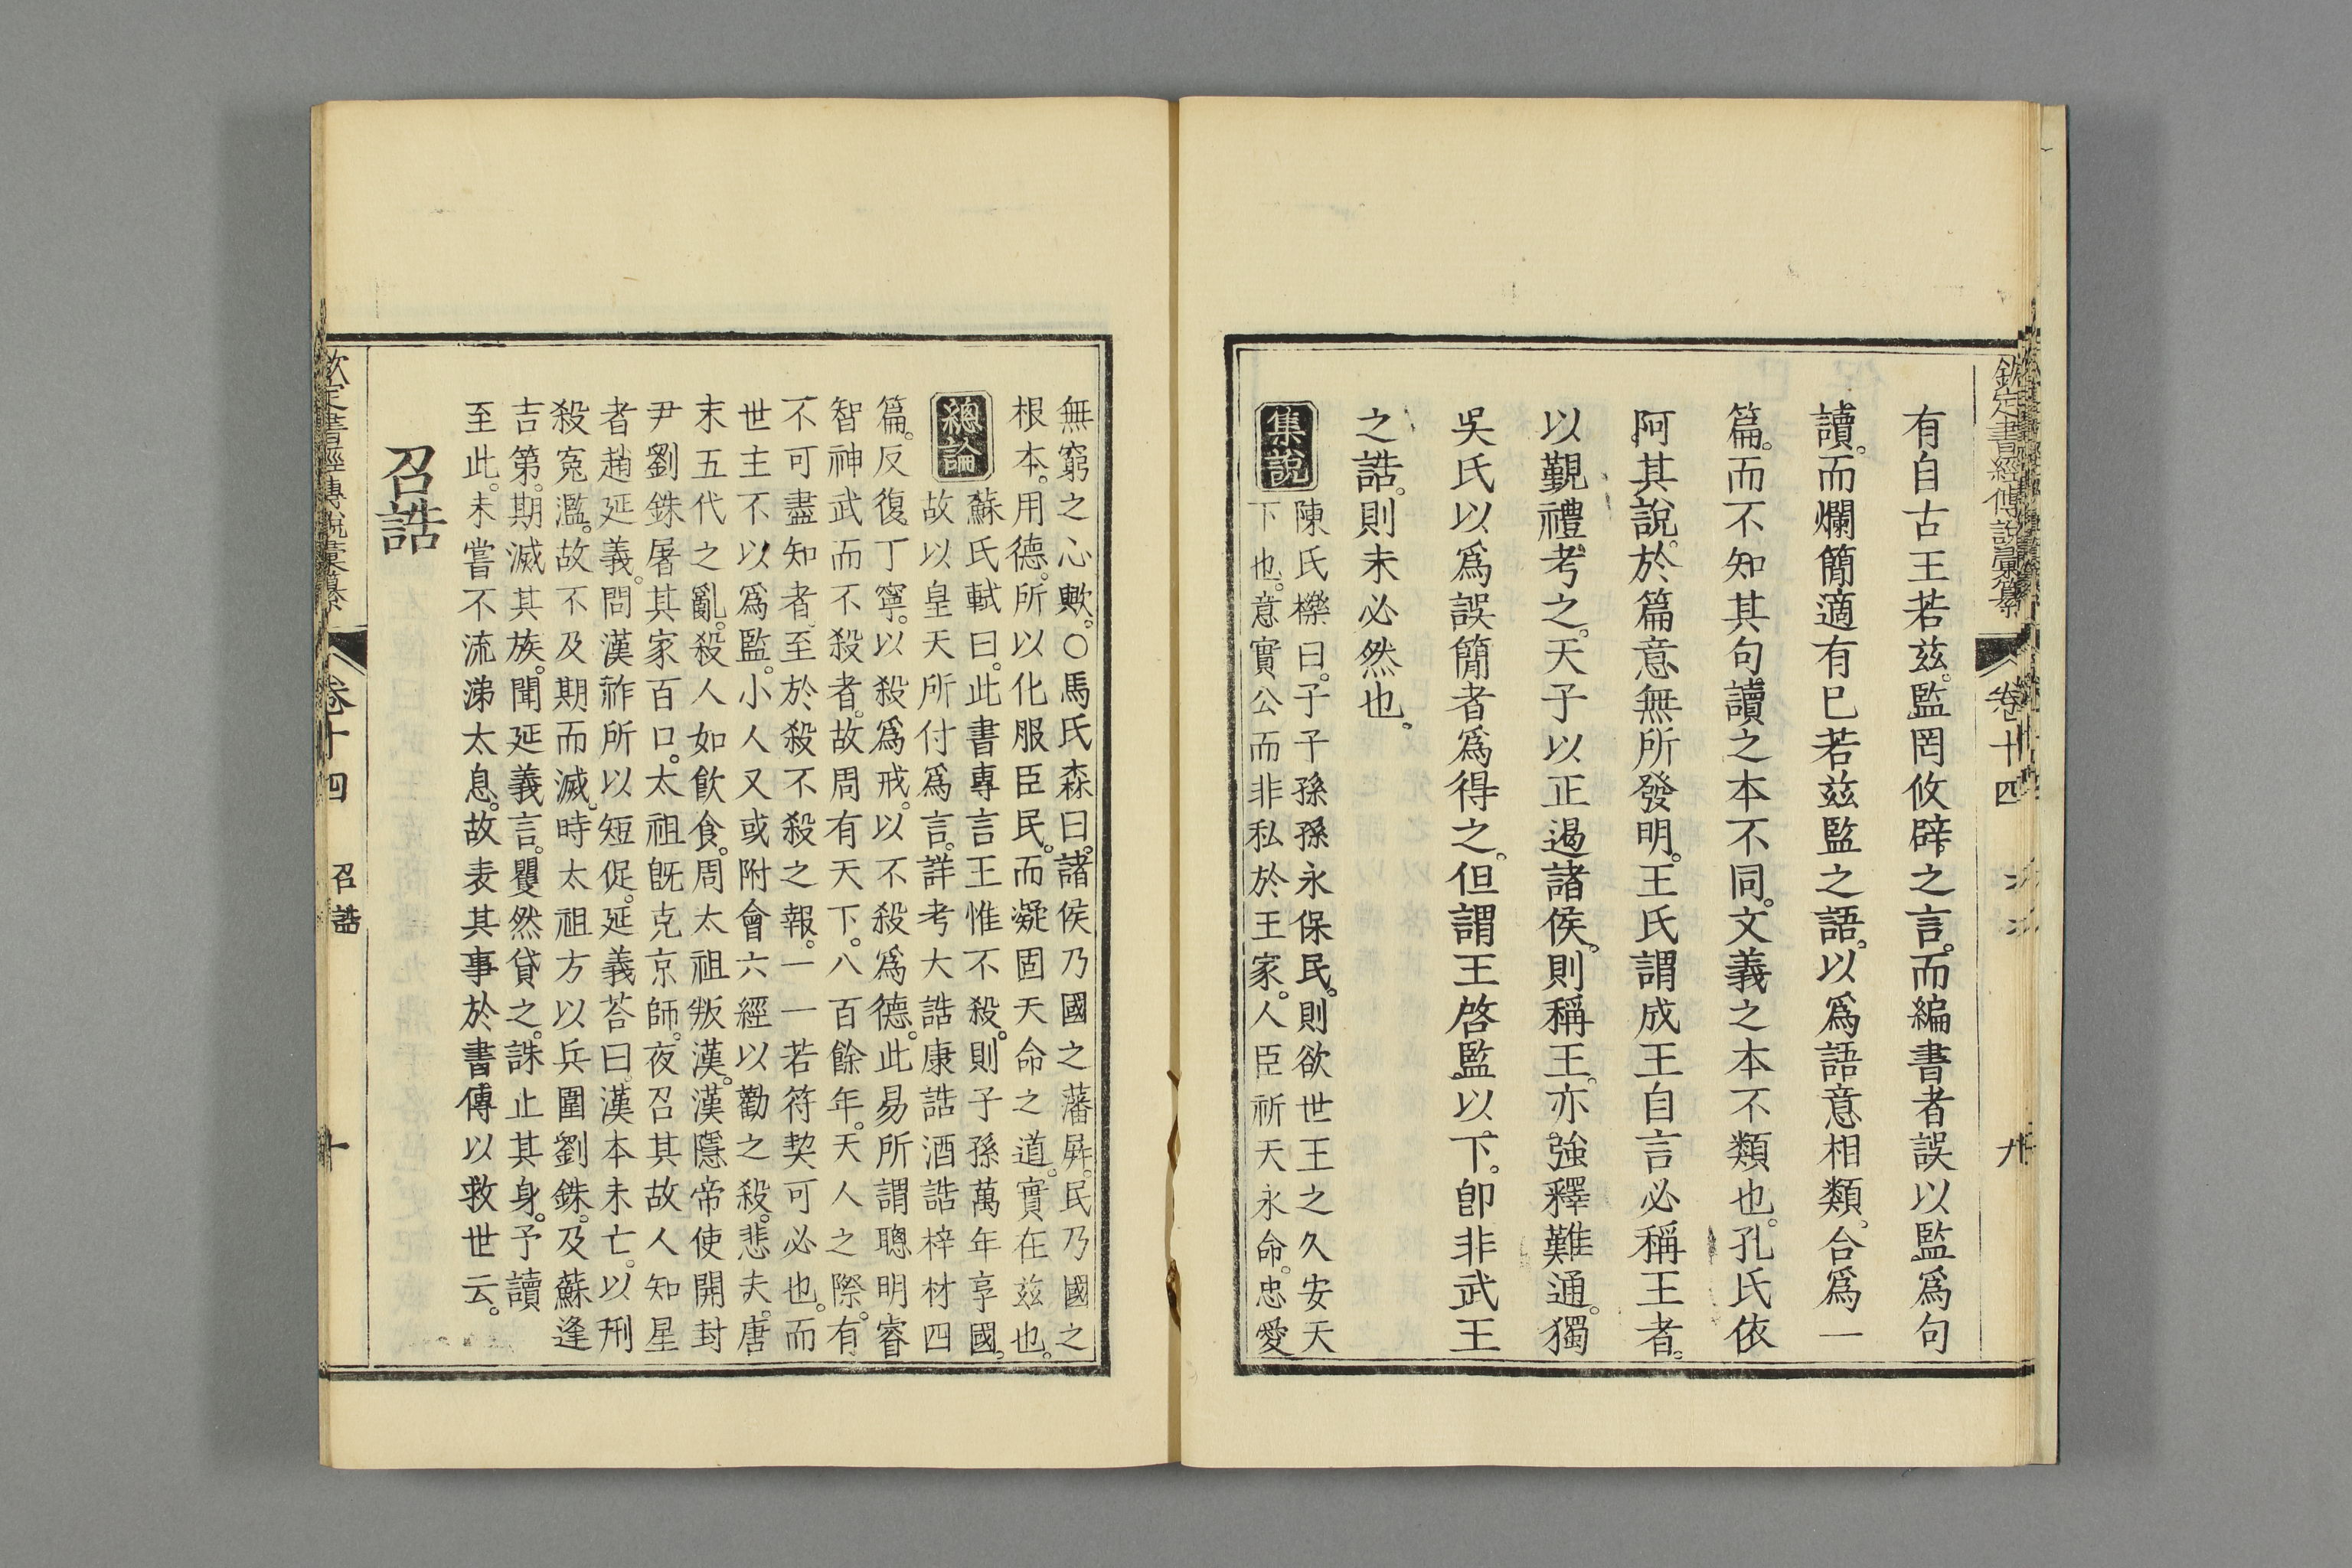 欽定書經傳說彙纂
卷十四
九
有自古王若茲監罔攸辟之言。而編書者誤以監爲句
讀。而爛簡適有已若茲監之語。以爲語意相類。合爲一
篇。而不知其句讀之本不同。文義之本不類也。孔氏依
阿其說。於篇意無所發明。王氏謂成王自言必稱王者。
以覲禮考之。天子以正遏諸侯。則稱王。亦強釋難通。獨
吳氏以爲誤簡者爲得之。但謂王啓監以下。卽非武王
之誥。則未必然也。
集說
陳氏櫟曰。子子孫孫永保民。則欲世王之久安天
下也。意實公而非私於王家。人臣祈天永命。忠愛
無窮之心歟。○馬氏森曰。諸侯乃國之藩屏。民乃國之
根本。用德。所以化服臣民。而凝固天命之道。實在茲也。
總論
蘇氏軾曰。此書專言王惟不殺。則子孫萬年享國。
故以皇天所付爲言。詳考大誥康誥酒誥梓材四
篇。反復丁寧。以殺爲戒。以不殺爲德。此易所謂聰明睿
智神武而不殺者。故周有天下。八百餘年。天人之際。有
不可盡知者。至於殺不殺之報。一一若符契可必也。而
世主不以爲監。小人又或附會六經以勸之殺。悲夫。唐
末五代之亂。殺人如飲食。周太祖叛漢。漢隱帝使開封
尹劉銖屠其家百口。太祖旣克京師。夜召其故人知星
者趙延義。問漢祚所以短促。延義荅曰。漢本未亡。以刑
殺寃濫。故不及期而滅。時太祖方以兵圍劉銖。及蘇逢
吉第。期滅其族。聞延義言。矍然貸之。誅止其身。予讀
至此。未嘗不流涕太息。故表其事於書傳以救世云。
召誥
欽定書經傳說彙纂
卷十四
召誥
十